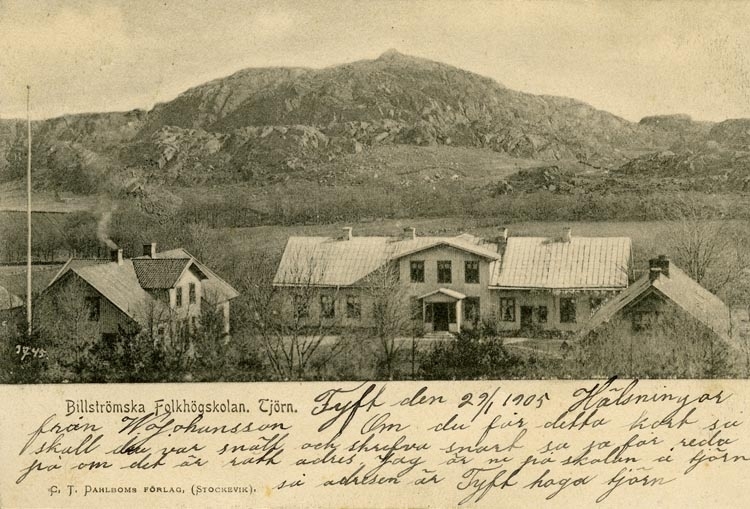 3445
Billströmska Folkhögskolan. Tjörn. Tyft den 29/1 1905 Hälsningar
från W Johansson Om du får detta kort så
skall du var snäll och skrifva snart så ja får reda
på om det är rätt adres, Jag är nu på skolan å tjörn
C. T. Dahlboms förlag, (Stockevik). så adresen är Tyft haga tjörn